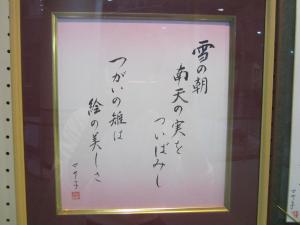 雪の朝
南天の実を
ついばみし
つがいの雉は
絵の美しさ
マサ子